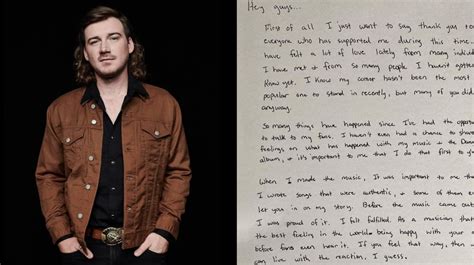 Hey guys...
First of all I just want to say thank you to
everyone who has supported me during this time. I
have felt a lot of love lately from many
I have met & from so many people I haven't gotten
Know yet. I know my corner hasn't been the most
popular one to stand in recently, but many of you did
anyway.
So many things have happened since I've had the
to talk to my fans. I haven't even had a chance to
feelings on what has happened with my music & the
album, & it's important to me that I do that first
When I made the music, it was important to me
I wrote songs that were authentic, & some of them
let you in on my story. Before the music came out
I was proud of it. I felt fulfilled. As a musician
the best feeling in the world being happy with your
before fans even hear it. If you feel that way, then
can live with the reaction, I guess.